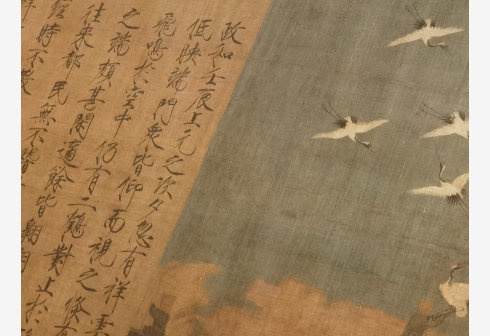 政和壬辰上元之次夕忽有祥雲
低映端門衆皆仰而視之倏有
飛鳴於空中仍有二鶴對止於
之端頗甚閑適餘皆翱翔
往來都民無不稽
經時不散